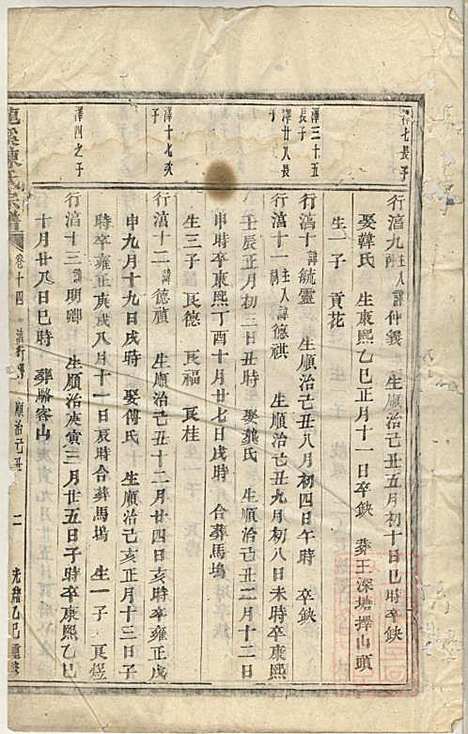 澤七長子
行滈九 主人 諱仲義 生順治己丑五月初十日巳時卒缺
娶韓氏 生康熙乙巳正月十一日卒缺 葬王深塘擇山頭
生一子 貢花
澤三十五長子
行滈十 諱毓靈 生順治己丑八月初四日午時 卒缺
澤廿八長子
行滈十一 主人 諱德祺 生順治己丑九月初八日未時卒康熙
壬辰正月初三日丑時 娶龔氏 生順治己丑二月十二日
申時卒康熙丁酉十月廿七戌時 合葬馬塢
生三子 良德 良福 良桂
澤十七次
行滈十二 諱德禎 生順治己丑十二月廿四日亥時卒雍正戊
申九月十九日戌時 娶傅氏 生順治己亥正月十三日子
時卒雍正庚戌八月十一日辰時合葬馬塢 生一子 良煜
澤四之子
行滈十三 諱明卿 生順治庚寅三月廿五日子時卒康熙乙巳
十月廿八日巳時 葬駱客山
龍溪陳氏宗譜 卷十四 順治己丑 二 光緒乙巳重修